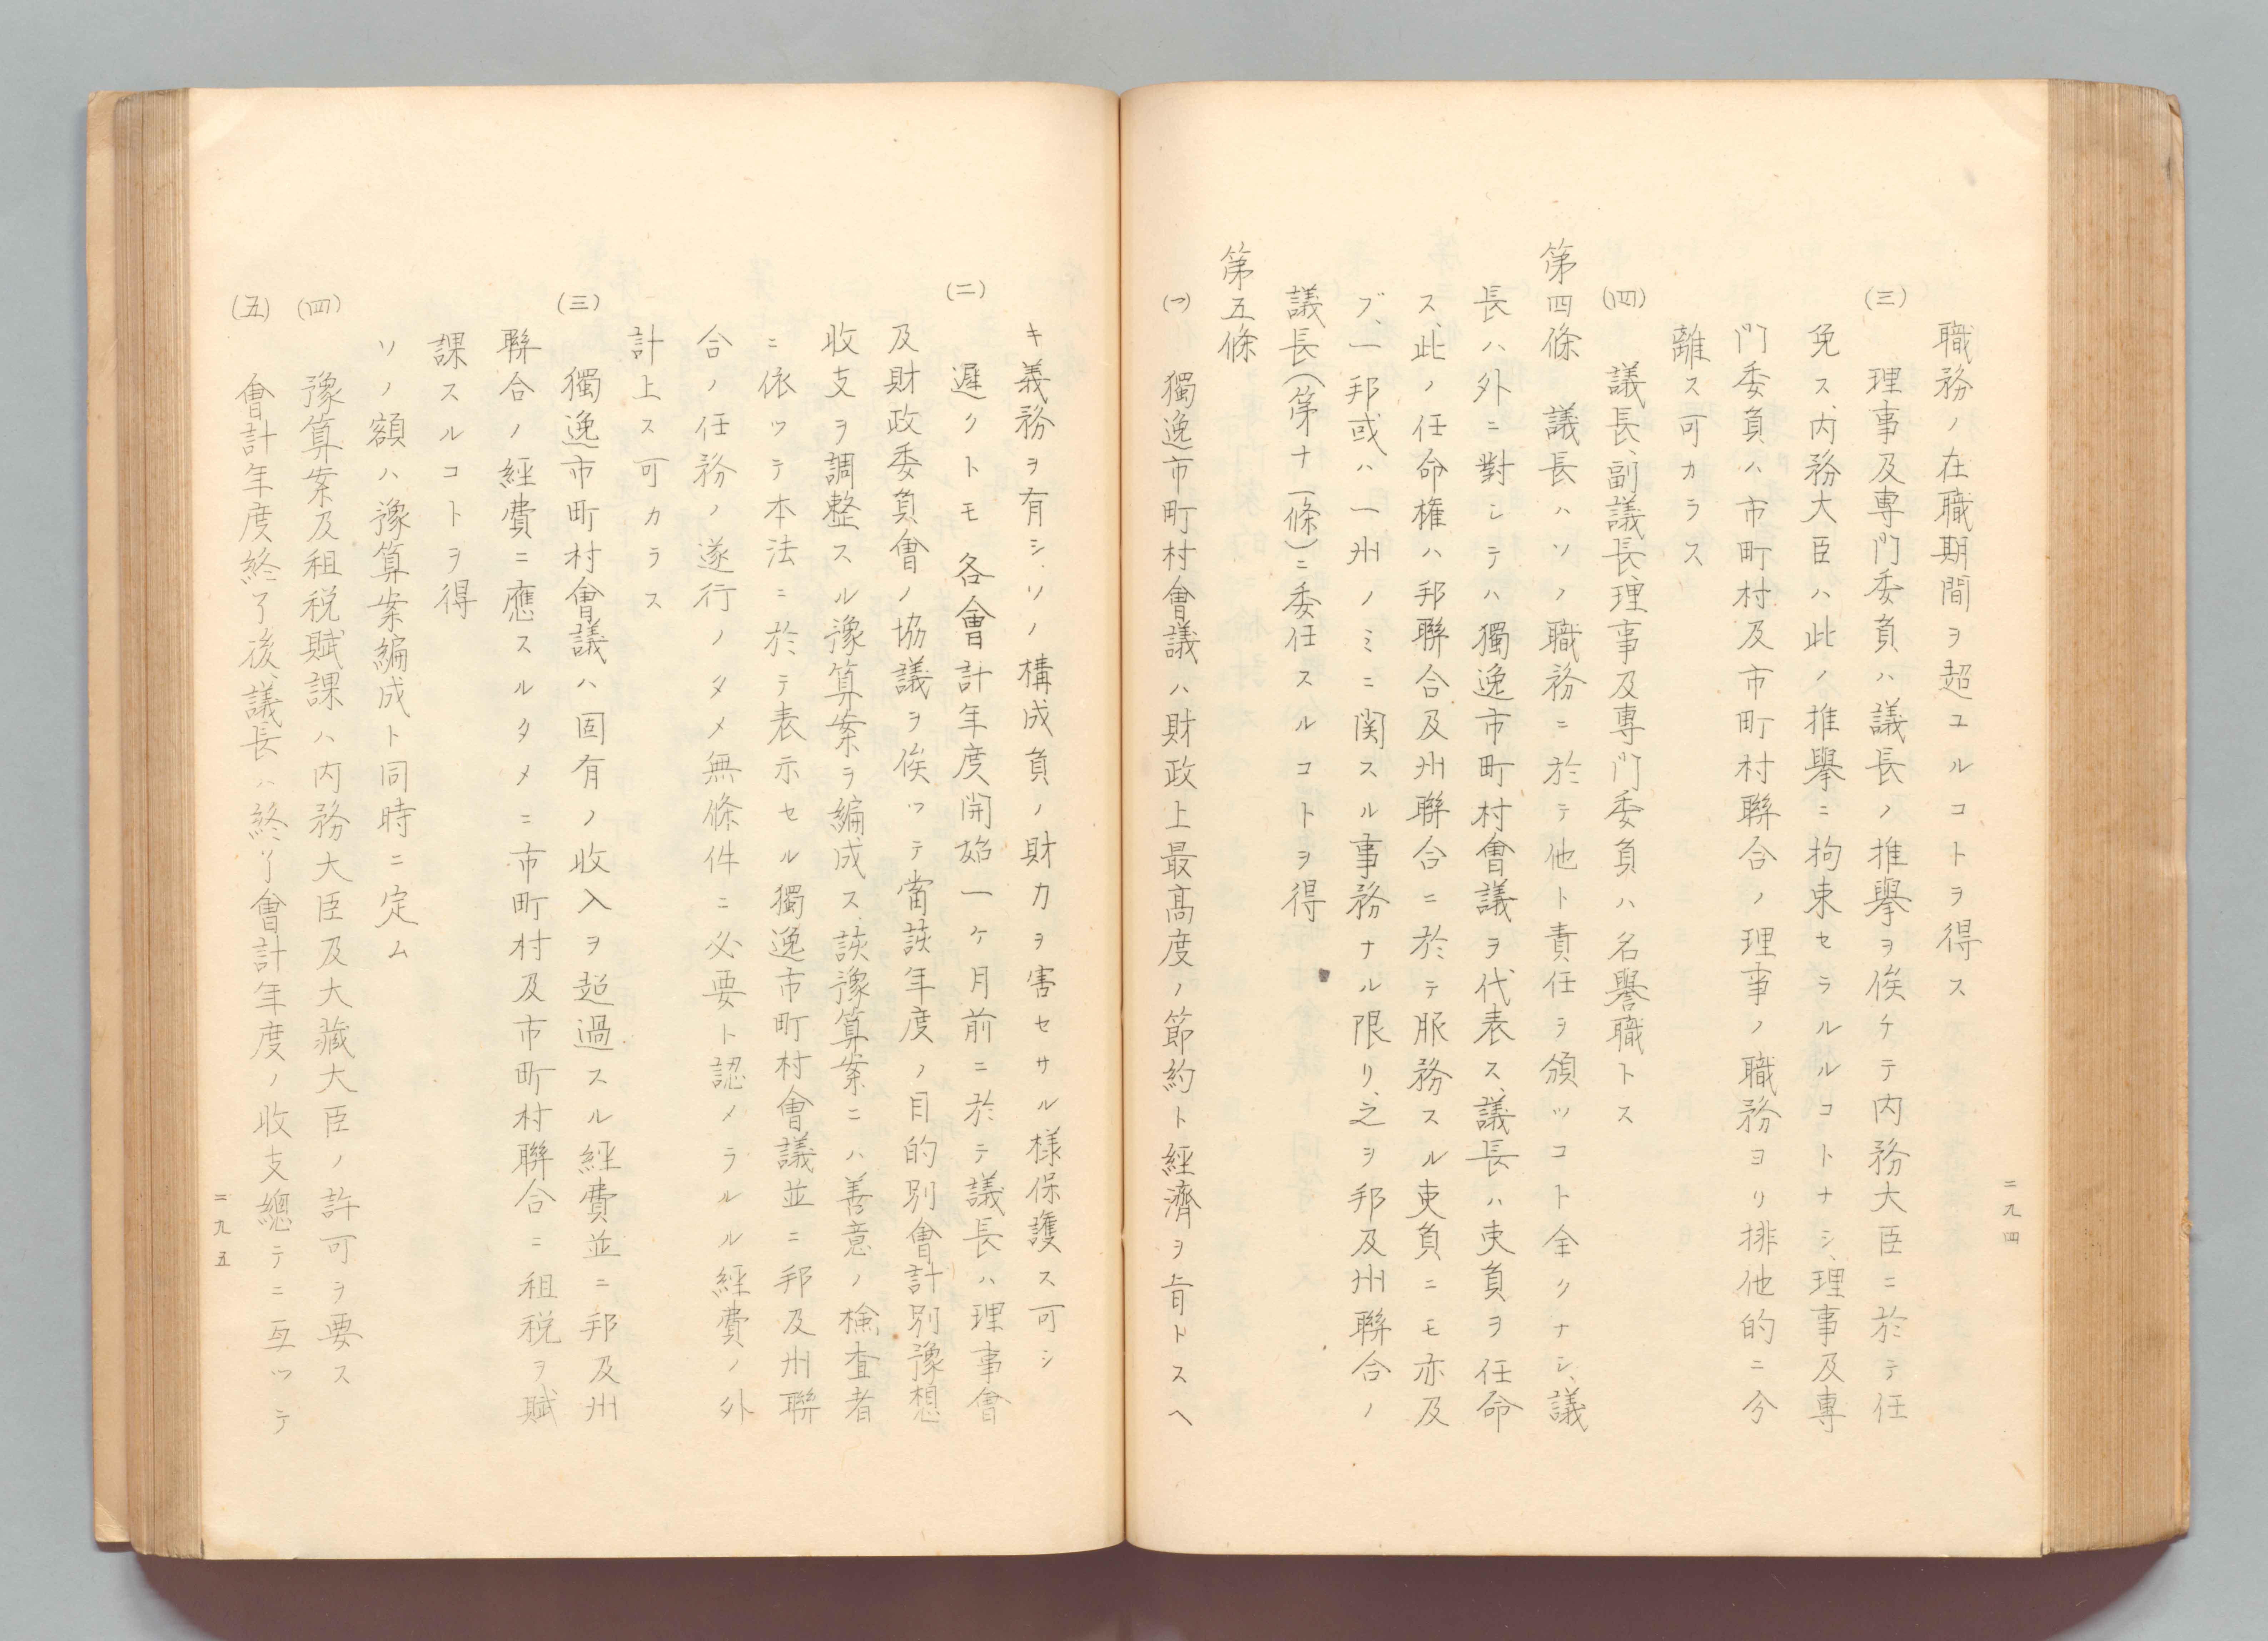 職務ノ在職期間ヲ超ユルコトヲ得ス
(三) 理事及專門委員ハ議長ノ推擧ヲ俟ケテ内務大臣ニ於テ任
免ス、内務大臣ハ此ノ推擧ニ拘束セラルルコトナシ、理事及專
門委員ハ市町村及市町村聯合ノ理事ノ職務ヨリ排他的ニ分
離ス可カラス
(四) 議長、副議長、理事及專門委員ハ名譽職トス
第四條 議長ハソノ職務ニ於テ他ト責任ヲ頒ツコト全クナシ、議
長ハ外ニ對シテハ獨逸市町村會議ヲ代表ス、議長ハ吏員ヲ任命
ス、此ノ任命權ハ邦聯合及州聯合ニ於テ服務スル吏員ニモ亦及
ブ、一邦或ハ一州ノミニ関スル事務ナル限リ、之ヲ邦及州聯合ノ
議長(第十一條)ニ委任スルコトヲ得
第五條
(一) 獨逸市町村會議ハ財政上最高度ノ節約ト經濟ヲ旨トスヘ
二九四
キ義務ヲ有シ、ソノ構成員ノ財力ヲ害セサル樣保護ス可シ
(二) 遲クトモ各會計年度開始一ヶ月前ニ於テ議長ハ理事會
及財政委員會ノ協議ヲ俟ツテ當該年度ノ目的別會計別豫想
收支ヲ調整スル豫算案ヲ編成ス、該豫算案ニハ善意ノ檢査者
ニ依ツテ本法ニ於テ表示セル獨逸市町村會議並ニ邦及州聯
合ノ任務ノ遂行ノタメ無條件ニ必要ト認メラルル經費ノ外
計上ス可カラス
(三) 獨逸市町村會議ハ固有ノ收入ヲ超過スル經費並ニ邦及州
聯合ノ經費ニ應スルタメニ市町村及市町村聯合ニ租税ヲ賦
課スルコトヲ得
ソノ額ハ豫算案編成ト同時ニ定ム
(四) 豫算案及租税賦課ハ内務大臣及大藏大臣ノ許可ヲ要ス
(五) 會計年度終了後、議長ハ終了會計年度ノ收支總テニ亙ツテ
二九五